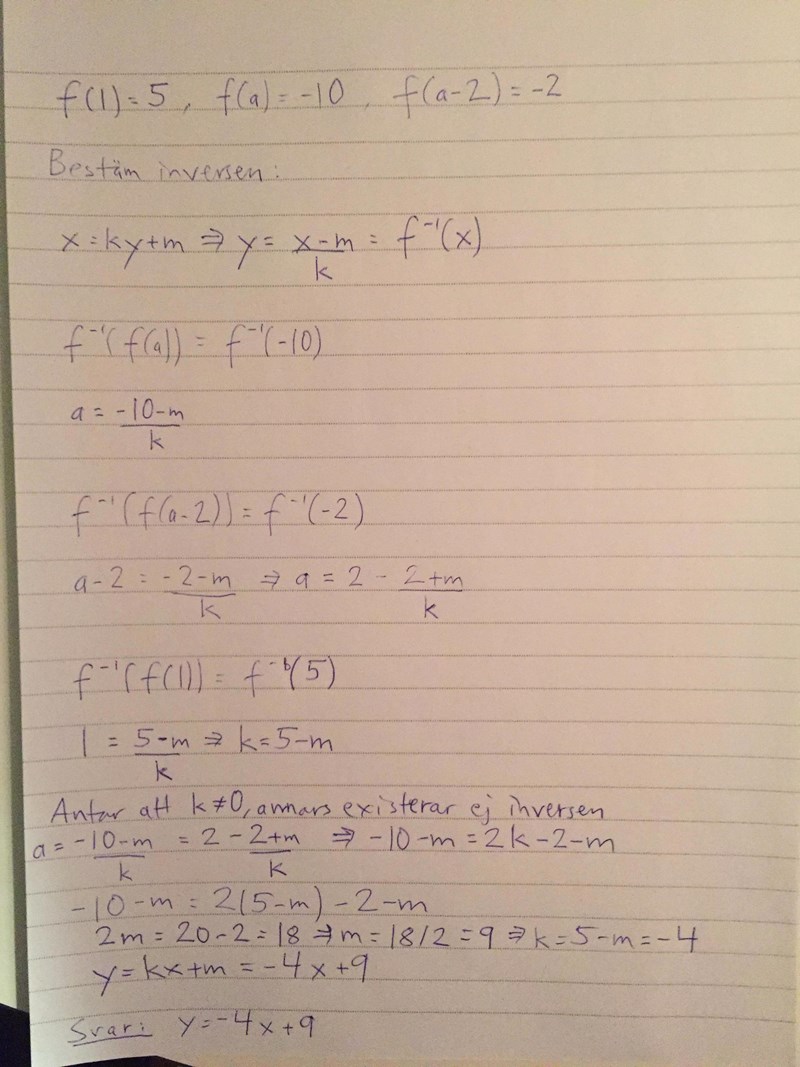 f(1)=5, f(a)=-10, f(a-2)=-2
Bestäm inversen:
x=ky+m ⇒ y= (x-m)/k = f⁻¹(x)
f⁻¹(f(a)) = f⁻¹(-10)
a = (-10-m)/k
f⁻¹(f(a-2)) = f⁻¹(-2)
a-2 = (-2-m)/k ⇒ a = 2 - (2+m)/k
f⁻¹(f(1)) = f⁻¹(5)
1 = (5-m)/k ⇒ k=5-m
Antar att k≠0, annars existerar ej inversen
a = (-10-m)/k = 2 - (2+m)/k ⇒ -10-m = 2k-2-m
-10-m = 2(5-m)-2-m
2m = 20-2 = 18 ⇒ m = 18/2 = 9 ⇒ k = 5-m = -4
y=kx+m = -4x+9
Svar: y=-4x+9